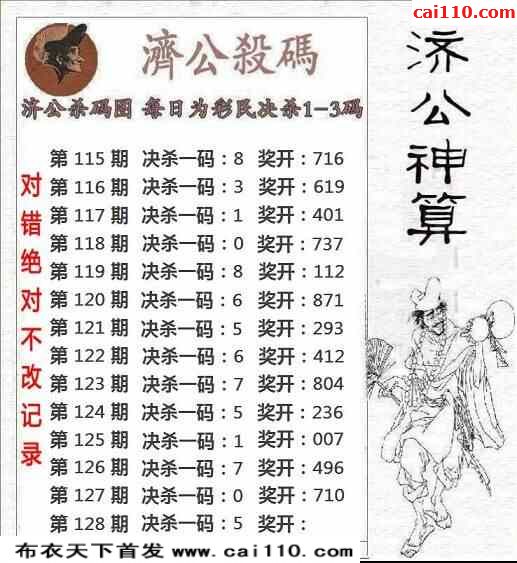 cai110.com
濟公殺碼
济公杀码图 每日为彩民决杀1-3码
第 115 期 决杀一码：8 奖开：716
第 116 期 决杀一码：3 奖开：619
第 117 期 决杀一码：1 奖开：401
第 118 期 决杀一码：0 奖开：737
第 119 期 决杀一码：8 奖开：112
第 120 期 决杀一码：6 奖开：871
第 121 期 决杀一码：5 奖开：293
第 122 期 决杀一码：6 奖开：412
第 123 期 决杀一码：7 奖开：804
第 124 期 决杀一码：5 奖开：236
第 125 期 决杀一码：1 奖开：007
第 126 期 决杀一码：7 奖开：496
第 127 期 决杀一码：0 奖开：710
第 128 期 决杀一码：5 奖开：
对错绝对不改记录
济公神算
布衣天下首发 www.cai110.com